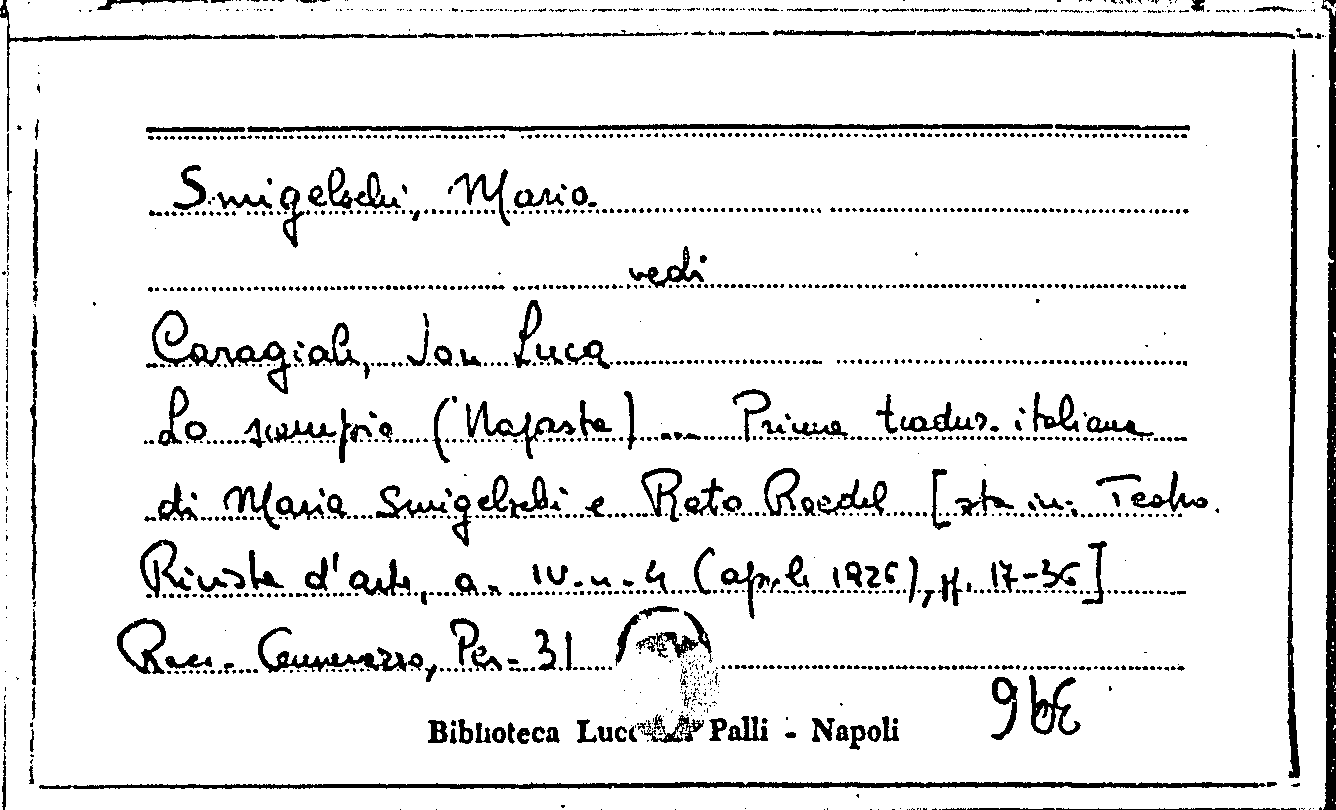 Smigelschi, Maria
vedi
Caragiale, Ion Luca
Lo scempio (Napasta) ... Prima traduz. italiana
di Maria Smigelschi e Reto Roedel [sta in: Teatro.
Rivista d'arte, a. IV. n. 4 (aprile 1926), pp. 17-36]
Racc. Per. 31
Biblioteca Palli - Napoli